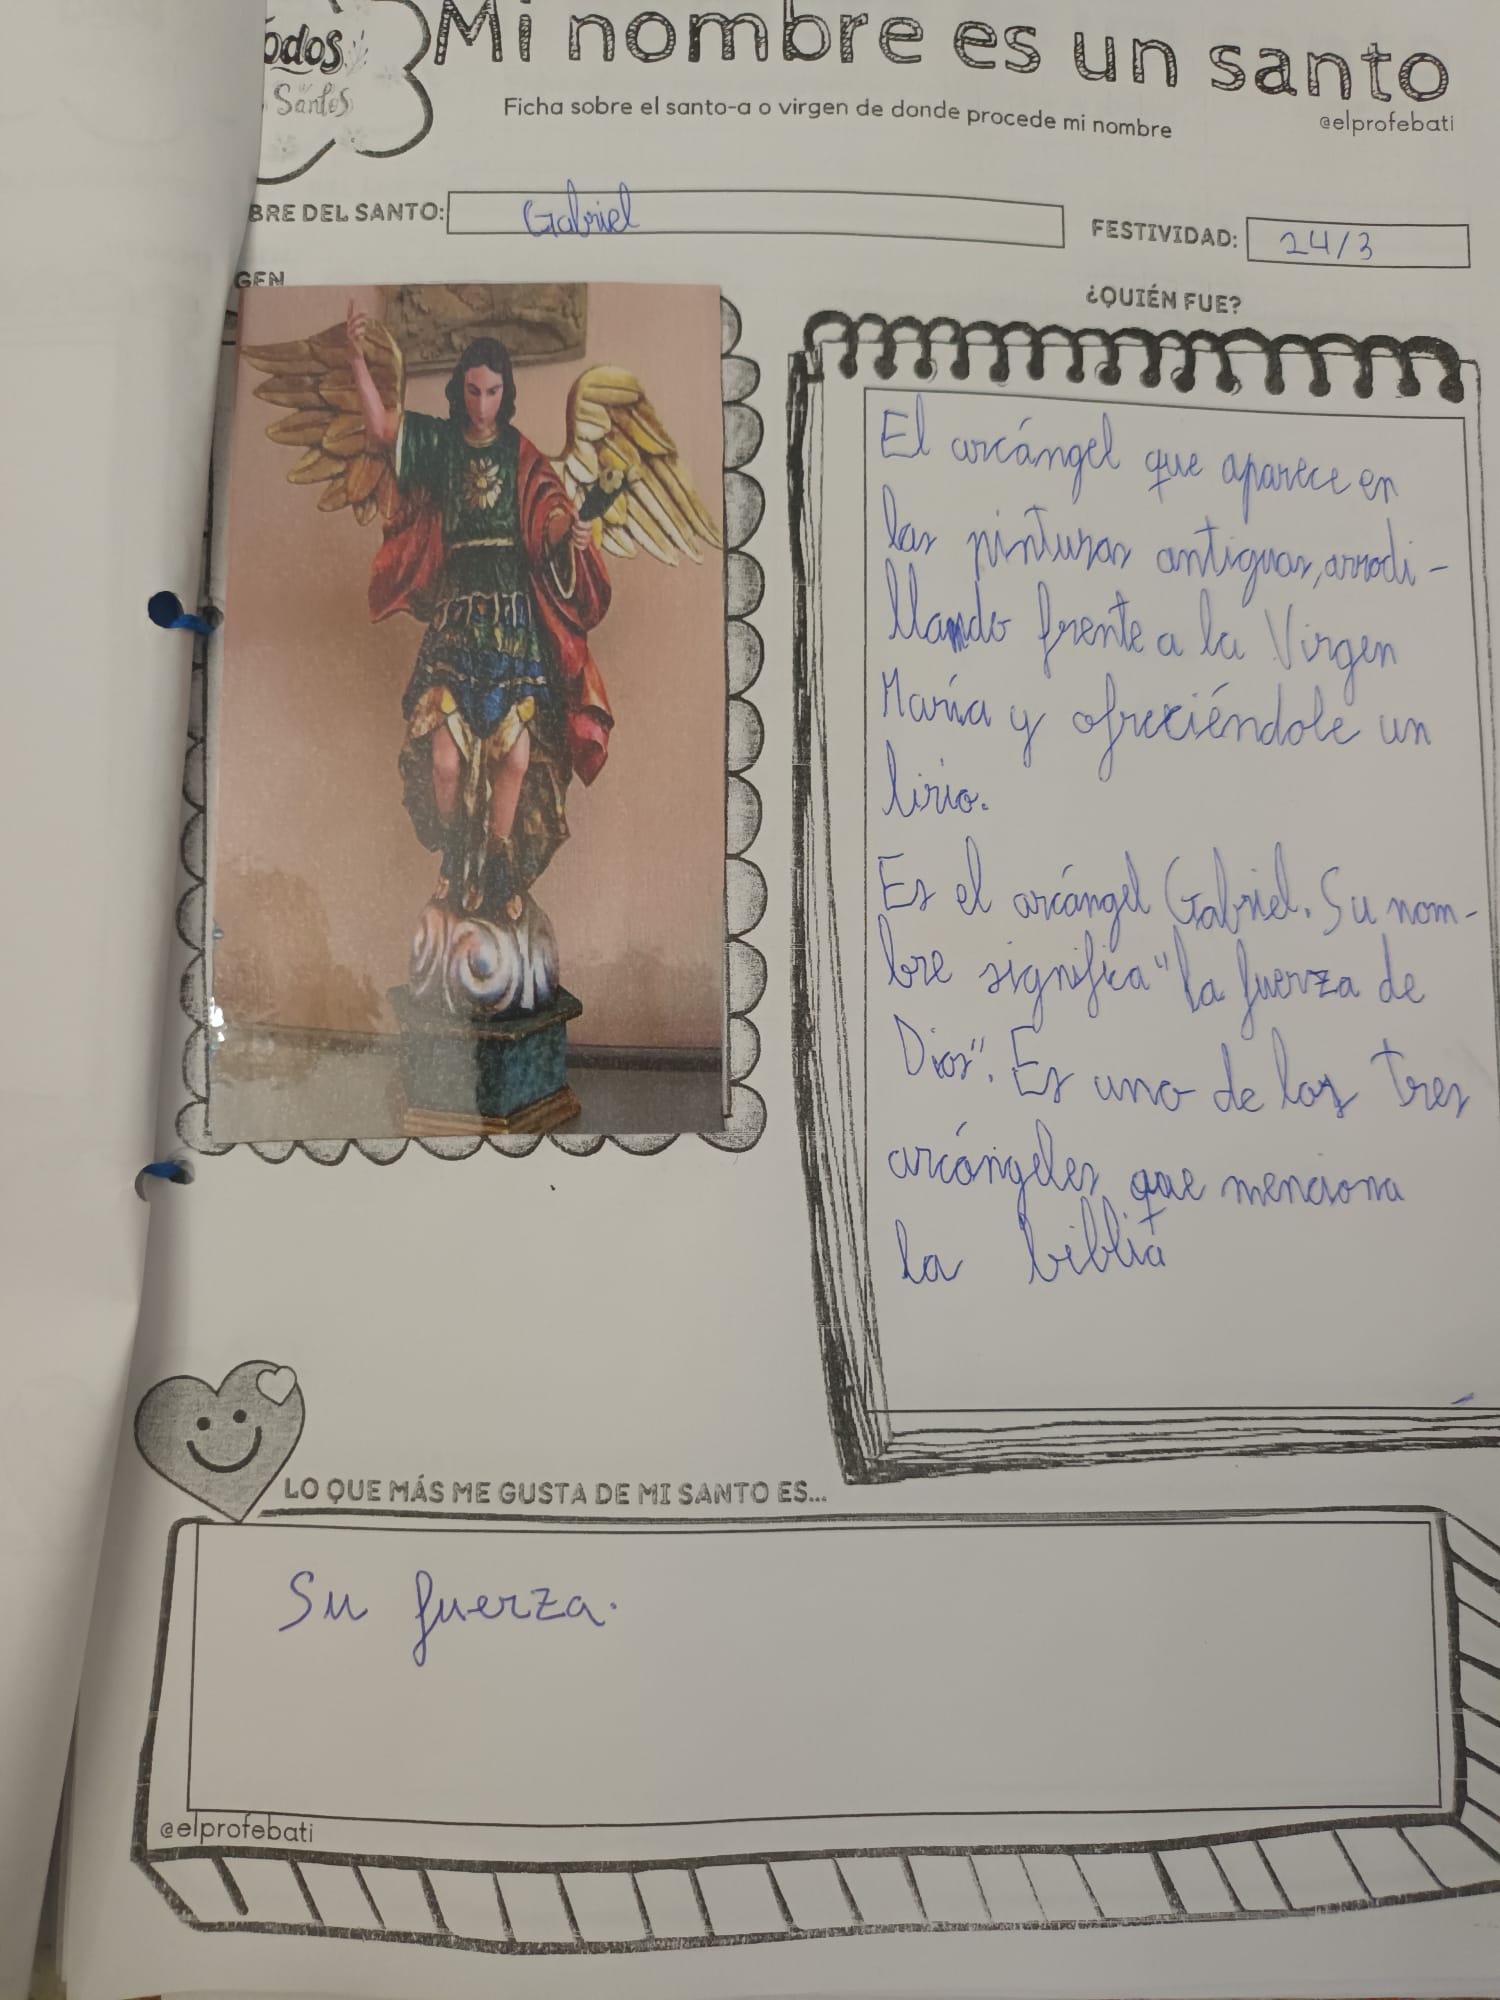 odos
Santos
Mi nombre es un santo
Ficha sobre el santo-a o virgen de donde procede mi nombre
@elprofebati
BRE DEL SANTO:
Gabriel
FESTIVIDAD:
24/3
GEN
¿QUIÉN FUE?
El arcángel que aparece en
las pinturas antiguas, arrodi-
llando frente a la Virgen
María y ofreciéndole un
lirio.
Es el arcángel Gabriel. Su nom-
bre significa "la fuerza de
Dios". Es uno de los tres
arcángeles que menciona
la biblia
LO QUE MÁS ME GUSTA DE MI SANTO ES...
Su fuerza.
@elprofebati